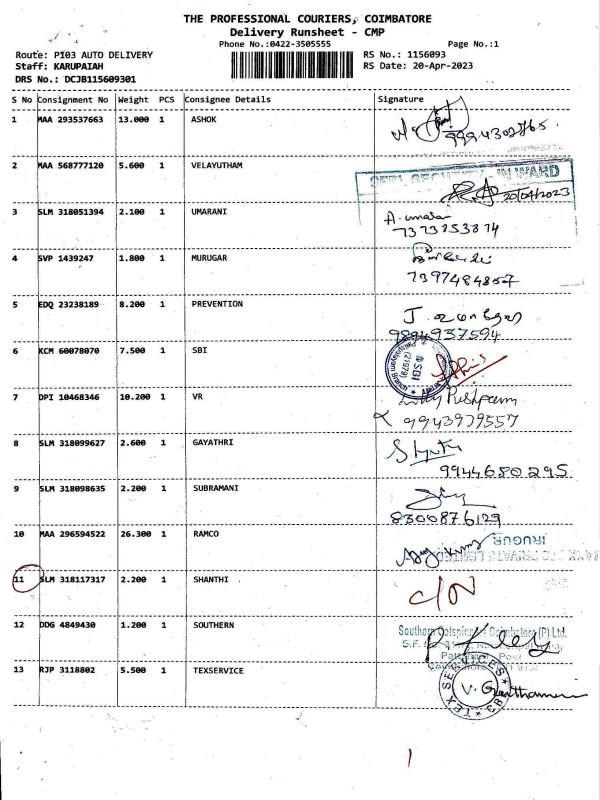 THE PROFESSIONAL COURIERS, COIMBATORE
Delivery Runsheet - CMP
Phone No.:0422-3505555 Page No.:1
Route: P103 AUTO DELIVERY RS No.: 1156093
Staff: KARUPAIAH RS Date: 20-Apr-2023
DRS No.: DCJB115609301
S No Consignment No Weight PCS Consignee Details Signature
1 MAA 293537663 13.000 1 ASHOK
9994302765.
2 MAA 568777120 5.600 1 VELAYUTHAM
INWARD
20/04/2023
3 SLM 318051394 2.100 1 UMARANI
A. umarani
7373253874
4 SVP 1439247 1.800 1 MURUGAR
7397484857
5 EDQ 23238189 8.200 1 PREVENTION
9894937594
6 KCM 60078070 7.500 1 SBI
SBI
7 DPI 10468346 10.200 1 VR
9943979557
8 SLM 318099627 2.600 1 GAYATHRI
9944680295
9 SLM 318098635 2.200 1 SUBRAMANI
8300876129
10 MAA 296594522 26.300 1 RAMCO
IRUGUR
11 SLM 318117317 2.200 1 SHANTHI
C/N
12 DDG 4849430 1.200 1 SOUTHERN
Southern Cotspinners Coimbatore (P) Ltd.
13 RJP 3118802 5.500 1 TEXSERVICE
TEX SERVICES